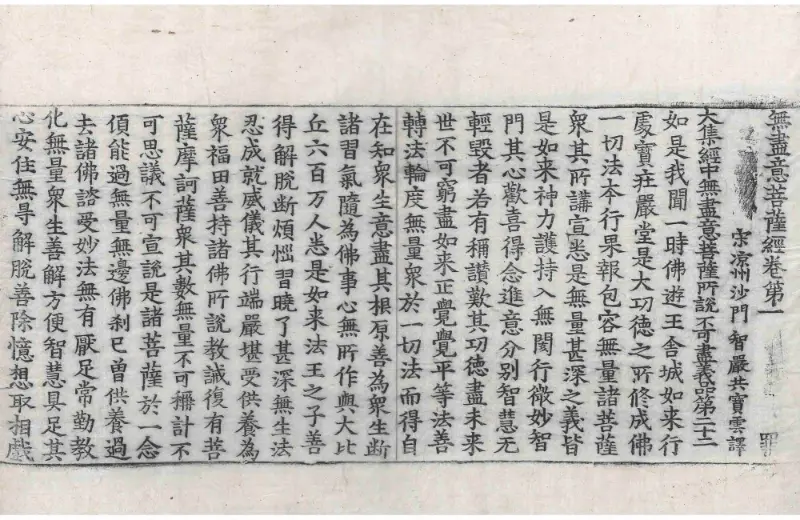 無盡意菩薩經卷第一
宋涼州沙門智嚴共寶雲譯
大集經中無盡意菩薩所說不可盡義品第三十二
如是我聞一時佛遊王舍城如来行
處寶莊嚴堂是大功德之所修成佛
一切法本行果報包容無量諸菩薩
衆其所講宣悉是無量甚深之義皆
是如来神力護持入無閡行微妙智
門其心歡喜得念進意分別智慧无
輕毀者若有稱讚歎其功德盡未来
世不可窮盡如来正覺覺平等法善
轉法輪度無量衆於一切法而得自
在知衆生意盡其根原善為衆生断
諸習氣隨為佛事心無所作與大比
丘六百万人悉是如来法王之子善
得解脫断煩惱習曉了甚深無生法
忍成就威儀其行端嚴堪受供養為
衆福田善持諸佛所說教誡復有菩
薩摩訶薩衆其數無量不可稱計不
可思議不可宣說是諸菩薩於一念
傾能過無量無邊佛刹已曾供養過
去諸佛諮受妙法無有厭足常勤教
化無量衆生善解方便智慧具足其
心安住無㝵解脫善除憶想取相戲
罪